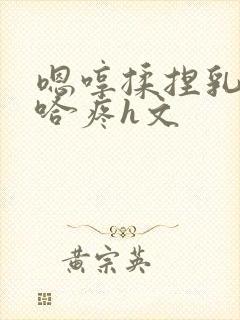 嗯哼揉捏乳
哈疼h文
黄宗英